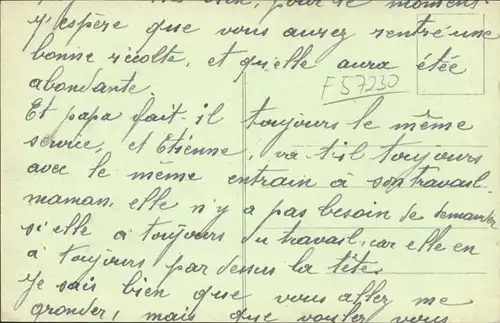 bien, pour le moment
j'espère que vous aurez rentré une
bonne récolte, et qu'elle aura étée
abondante.
F57230
Et papa fait-il toujours le même
service, et Etienne, va t'il toujours
avec le même entrain à son travail.
maman, elle n'y a pas besoin de demander
si elle a toujours du travail, car elle en
a toujours par dessus la tête.
Je sais bien que vous allez me
gronder, mais que voulez vous